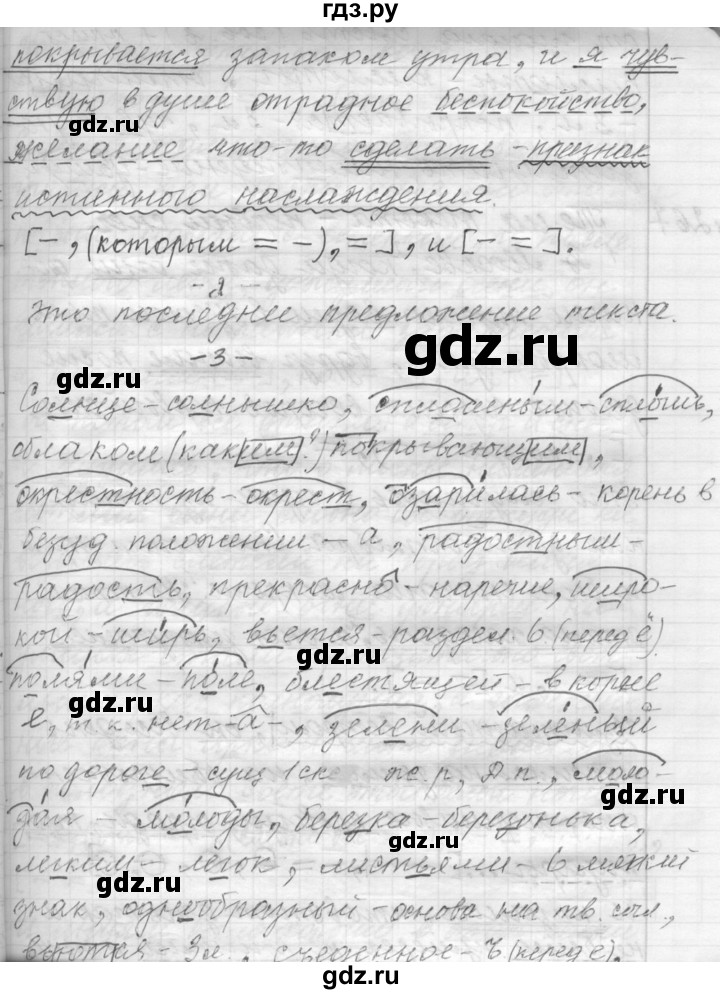 гдз.ру
покрывается запахом утра, и я чув-
ствую в душе отрадное беспокойство,
gdz.ru
желание что-то сделать - признак
истинного наслаждения.
gdz.ru
[-, (которым = -), =], и [- = ].
- 2 -
Это последнее предложение текста.
gdz.ru
- 3 -
gdz.ru
Солнце - солнышко, сплошным - сплошь,
облаком (каким?) покрывающим,
gdz.ru
окрестность - окрест, озарилась - корень в
gdz.ru
безуд. положении - а, радостным -
радость, прекрасно - наречие, широ-
кой - ширь, вьется - раздел. ь (перед ё)
gdz.ru
полями - поле, блестящей - в корне
е, т.к. нет -а-, зелени - зелёный
по дороге - сущ 1 скл ж.р, Д.п., моло-
gdz.ru
дая - молоды, березка - березонька,
gdz.ru
легким - легок, листьями - ь мягкий
gdz.ru
знак, однообразный - основа на тв. согл.,
вьются - 3 л., съеденное - ъ (перед е).
gdz.ru
гдз.ру